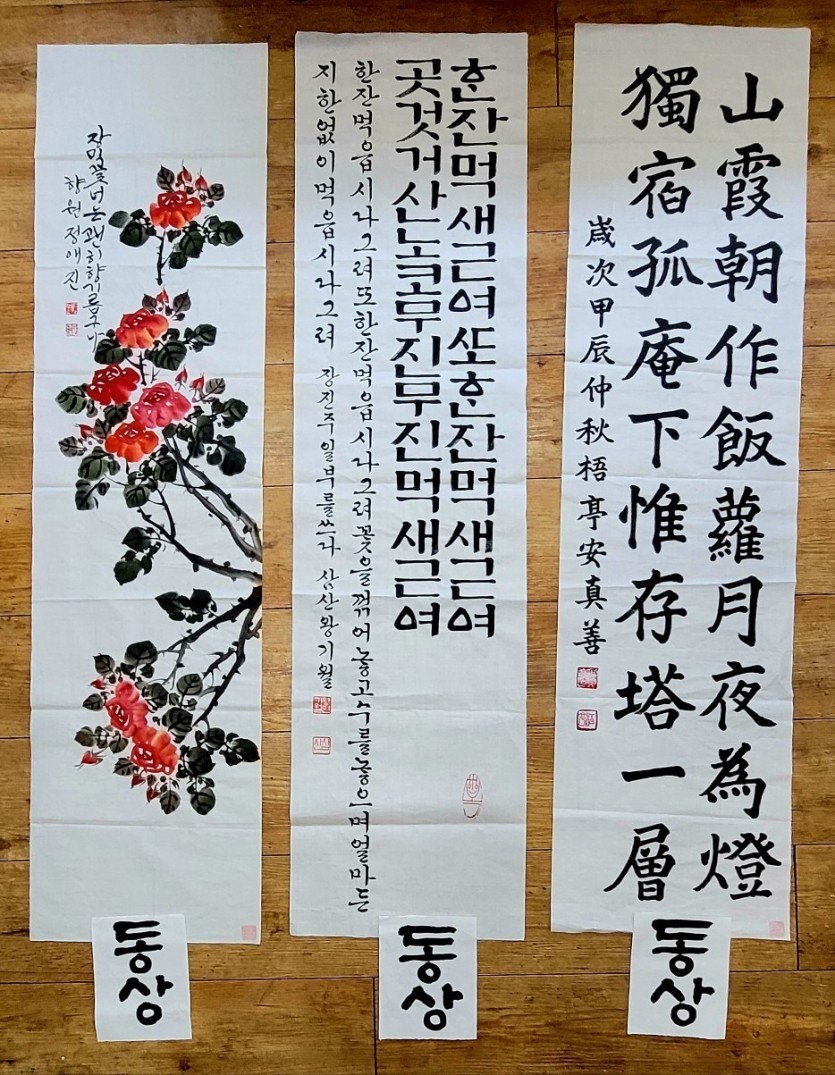 장미꽃너는괜히향기롭구나
향원정애진
ᄒᆞᆫ잔먹새근여ᄯᅩᄒᆞᆫ잔먹새근여
곳것거산노코무진무진먹새근여
한잔먹읍시다그려또한잔먹읍시다그려꽃을꺾어놓고수를놓으며얼마든
지한없이먹읍시다그려 장진주일부를쓰다 삼산왕기월
山霞朝作飯蘿月夜為燈
獨宿孤庵下惟存塔一層
歲次甲辰仲秋梧亭安真善
동상
동상
동상